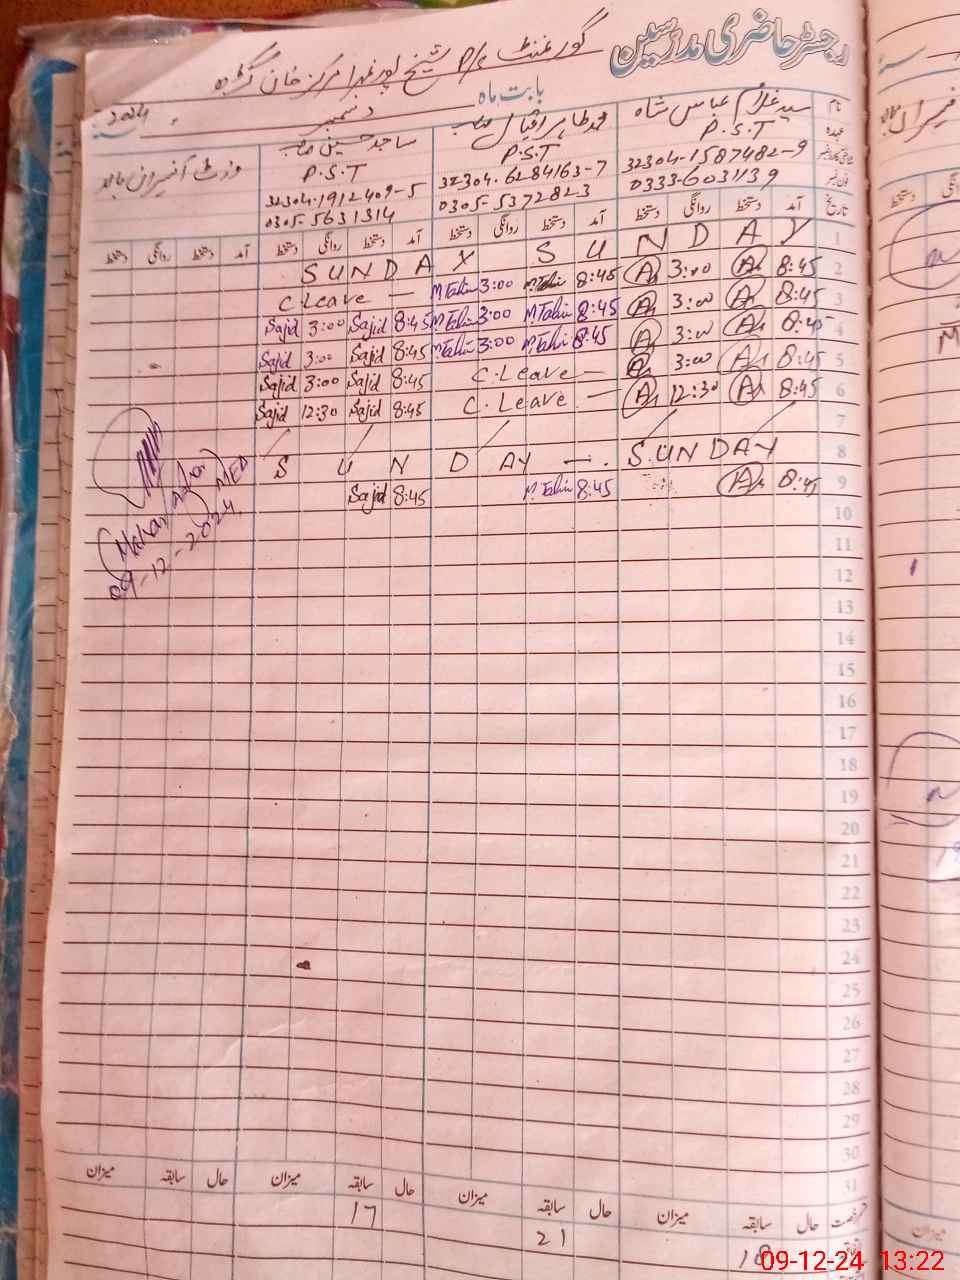 رجسٹر حاضری مدرسین
گورنمنٹ P/S شیخ پور غبرا مرکز خان گڑھ
بابت ماہ دسمبر 2024
نام سید غلام عباس شاہ محمد طاہر اقبال ساجد حسین وزٹ آفیسران بالا
عہدہ P.S.T P.S.T P.S.T
32304-1587482-9 32304-6284163-7 32304-1912409-5
فون نمبر 0333-6031139 0305-5372823 0305-5631314
تاریخ آمد دستخط روانگی دستخط آمد دستخط روانگی دستخط آمد دستخط روانگی دستخط آمد دستخط روانگی دستخط
1 SUNDAY SUNDAY
2 8:45 3:00 8:45 M.Tahir 3:00 M.Tahir C.Leave —
3 8:45 3:00 8:45 M.Tahir 3:00 M.Tahir 8:45 Sajid 3:00 Sajid
4 8:45 3:00 8:45 M.Tahir 3:00 M.Tahir 8:45 Sajid 3:00 Sajid
5 8:45 3:00 C.Leave — 8:45 Sajid 3:00 Sajid
6 8:45 12:30 C.Leave — 8:45 Sajid 12:30 Sajid
7
8 SUNDAY —. SUNDAY
9 8:45 8:45 M.Tahir 8:45 Sajid
MED
09-12-2024
10
11
12
13
14
15
16
17
18
19
20
21
22
23
24
25
26
27
28
29
30
31
حال سابقہ میزان حال سابقہ میزان حال سابقہ میزان حال سابقہ میزان
21 17
09-12-24 13:22